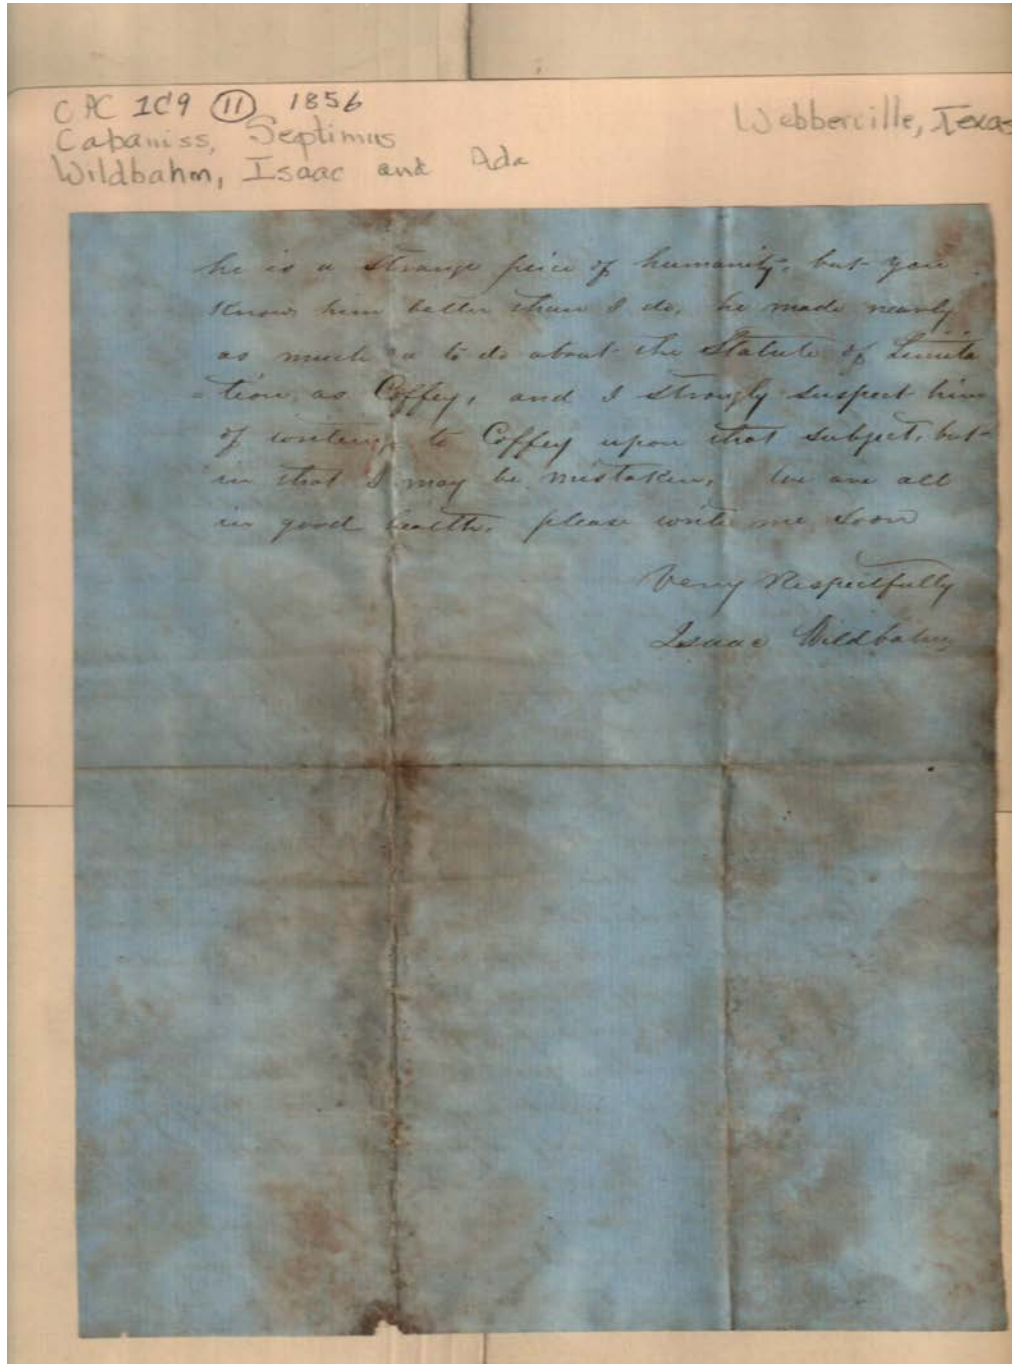 CPC 1C9 (11) 1856
Cabaniss, Septimus
Wildbahm, Isaac and Ada
Webberville, Texas
he is a strange peice of humanity, but you
know him better than I do, he made nearly
as much a to do about the Statute of Limita
=tion, as Coffey, and I strongly suspect him
of writeing to Coffey upon that subject, but
in that I may be mistaken, We are all
in good health. please write me soon
Very Respectfully
Isaac Wildbahm